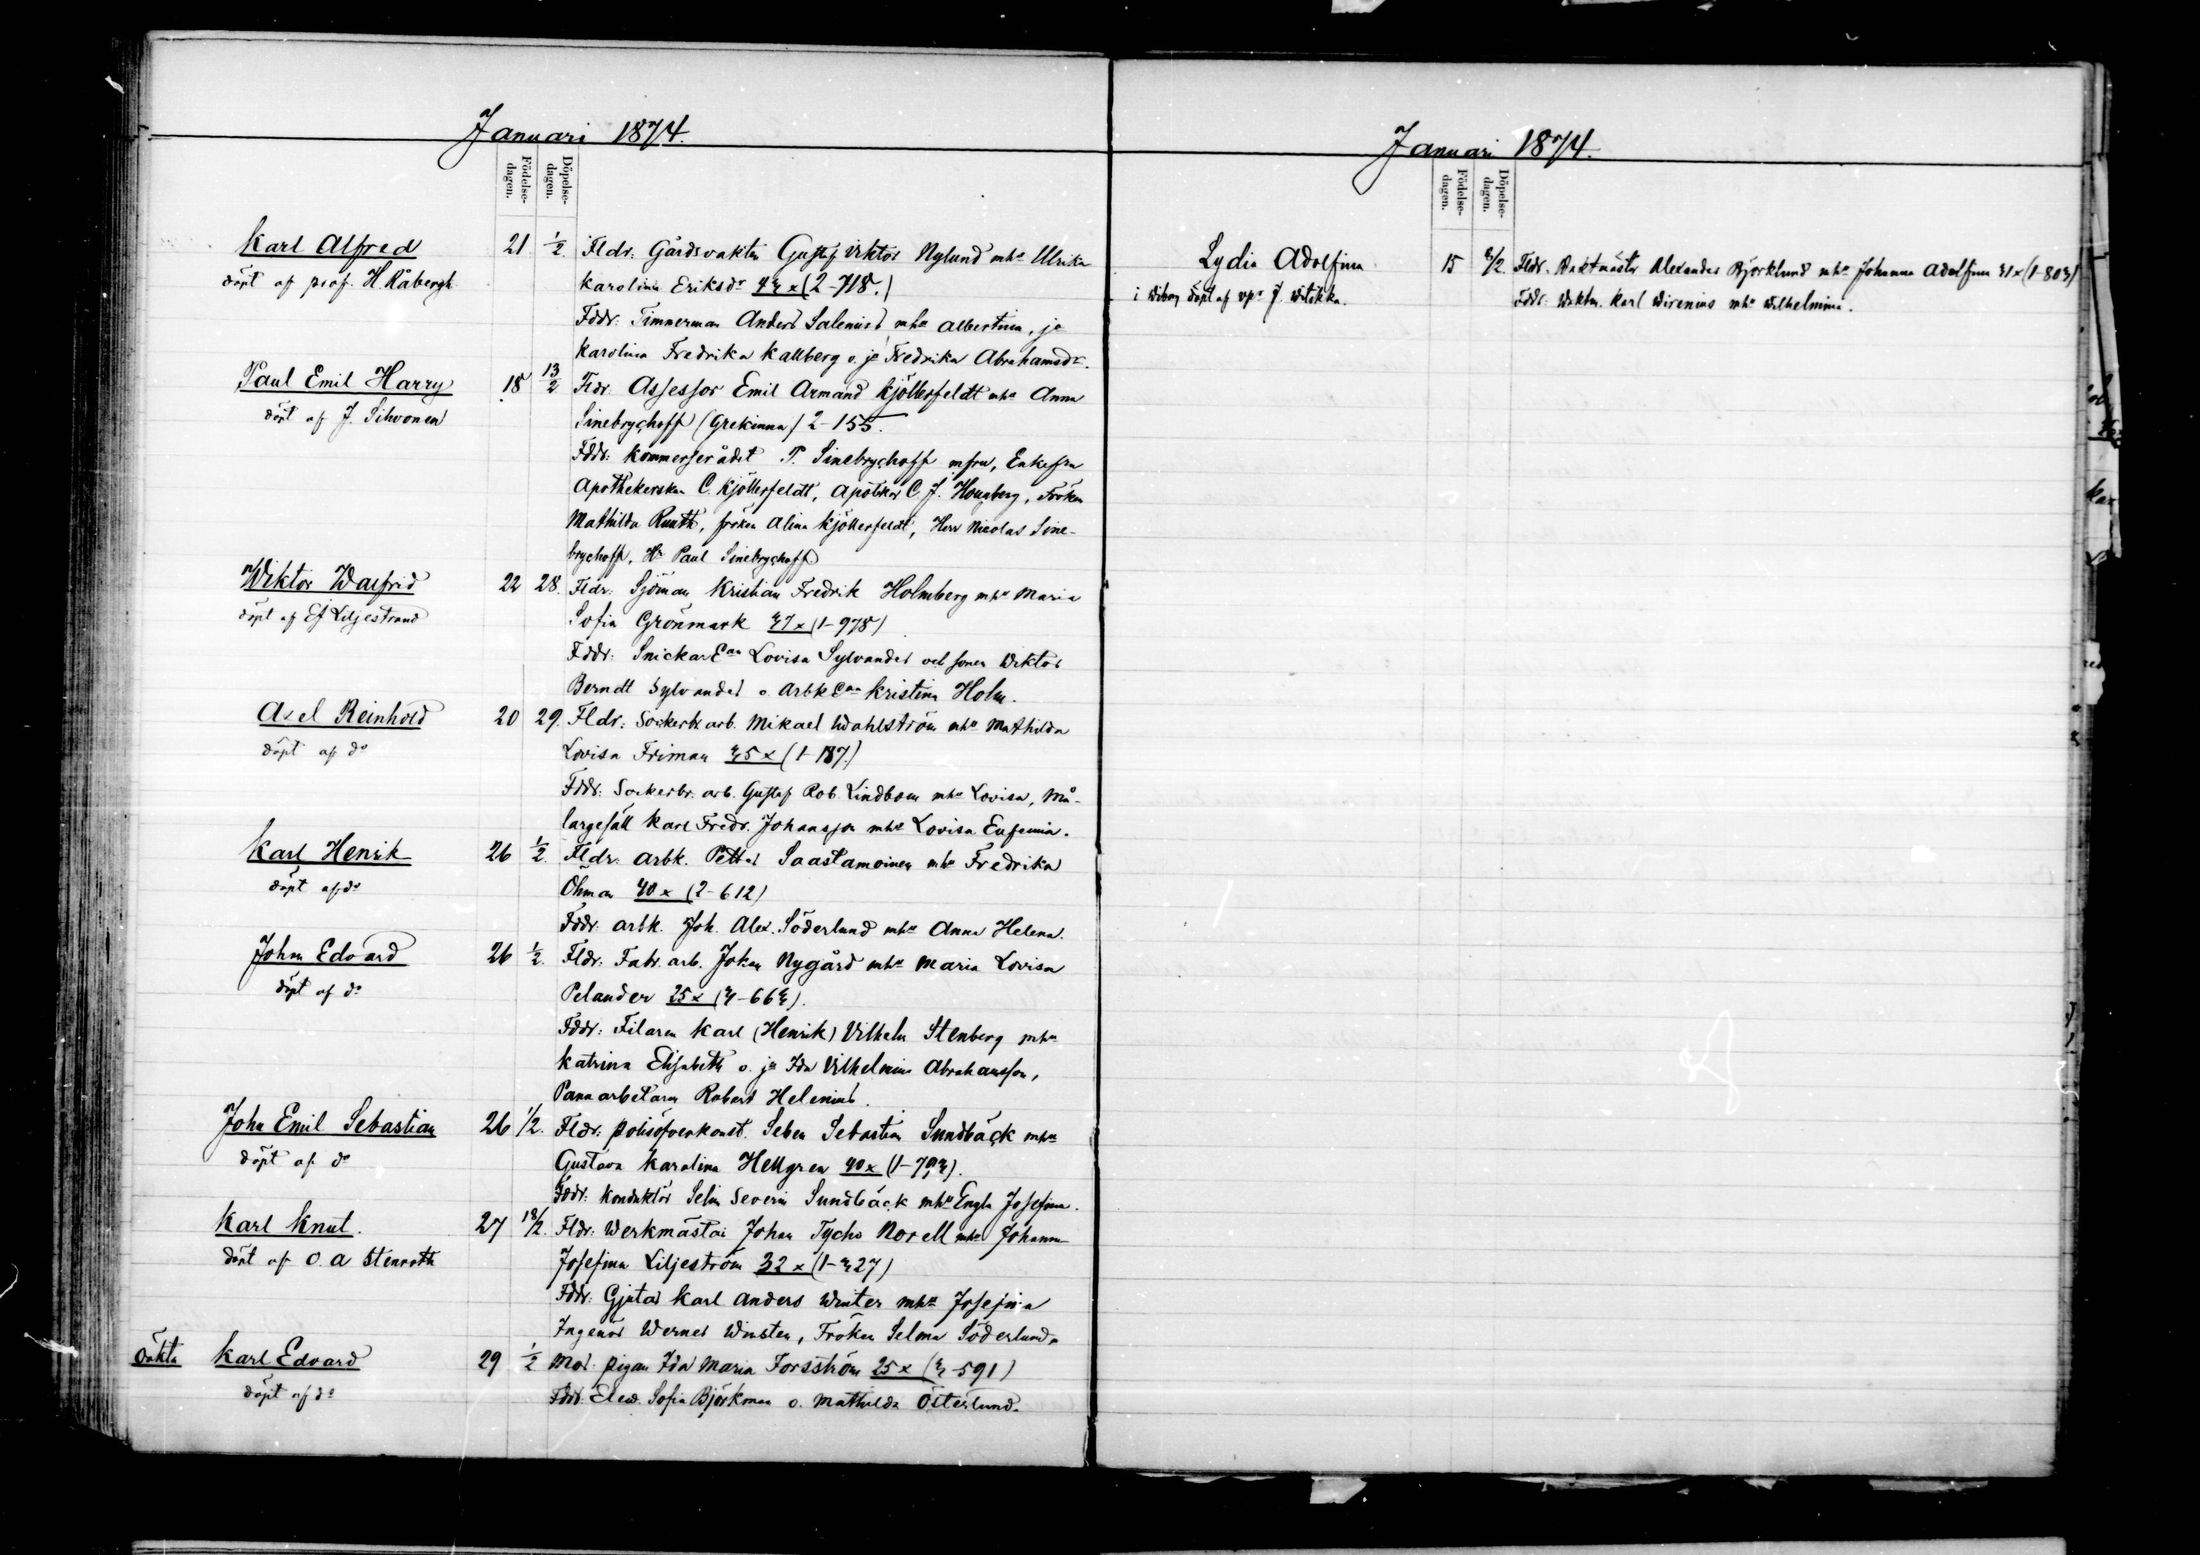 Januari 1874.
Födelse-
dagen.
Döpelse-
dagen.
Karl Alfred
döpt af prof. H. Råbergh
21 1/2. Fldr. Gårdsvakten Gustaf Viktor Nylund mhu Ulrika
Karolina Eriksdr (2-718.)
Fddr: Timmerman Anders Salenius mhu Albertina, je
Karolina Fredrika Kallberg o. je Fredrika Abrahamsdr.
Paul Emil Harry
döpt af J. Sihvonen
18 13/2 Fldr. Assessor Emil Armand Kjöllerfeldt mhu Anna
Sinebrychoff (Grekinna) 2-155.
Fddr: Kommerserådet P. Sinebrychoff m fru, Enkefru
Apothekerskan C. Kjöllerfeldt, Apotkr C. J. Fröken
Mathilda Runth, fröken Alina Kjöllerfeldt, Herr Nicolas Sine-
brychoff, Hr Paul Sinebrychoff
Wiktor Walfrid
döpt af Ef Liljestrand
22 28. Fldr: Sjöman Kristian Fredrik Holmberg mhu Maria
Sofia Grönmark x (1-978)
Fddr: Snickar Lovisa Sylvander och sonen Wiktor
Berndt Sylvander o Arbk Kristina Holm.
Axel Reinhold
döpt af do
20 29. Fldr: Sockerbr arb. Mikael Wahlström mhu Mathilda
Lovisa Friman x (1-187.)
Fddr: Sockerbr. arb. Gustaf Rob. Lindbom mhu Lovisa, Må-
laregesäll Karl Fredr. Johansson mhu Lovisa Eufemia.
Karl Henrik
döpt af do
26 1/2. Fldr: arbk. Petter Saastamoinen mhu Fredrika
Öhman 40 x (2-612)
Fddr: arbk. Joh. Alex. Söderlund mhu Anna Helena.
Johan Edvard
döpt af do
26 1/2. Fldr. Fabr. arb. Johan Nygård mhu Maria Lovisa
Pelander 25 x
Fddr: Filaren Karl (Henrik) Vilhelm Stenberg mhu
Katrina Elisabeth o. je Ida Vilhelmina Abrahamsson,
Pannarbetaren Robert Helenius.
John Emil Sebastian
döpt af do
26 1/2. Fldr: polisöfverkonst. Sebastian Sundbäck mhu
Gustava Karolina Hellgren 40 x
Fddr: Konduktör Selim Severin Sundbäck mhu Engla Josefina.
Karl Knut.
döpt af O. A Stenroth
27 18/2. Fldr: Werkmästar Johan Tycho Norell mhu Johanna
Josefina Liljeström 32 x
Fddr: Gjutar Karl Anders Winter mhu Josefina
Ingenör Werner Winter, Fröken Selma Söderlund
Oäkta Karl Edvard
döpt af do
29 1/2 Mod. pigan Ida Maria Forsström 25 x
Fddr. Elev. Sofia Björkman o. Mathilda Österlund.
Januari 1874.
Födelse-
dagen.
Döpelse-
dagen.
Lydia Adolfina
i Wiborg döpt af vpr J. Witikka.
15 Fldr. Alexander Björklund mhu Johanna Adolfina
Fddr: Karl Wirenius mhu Wilhelmina.